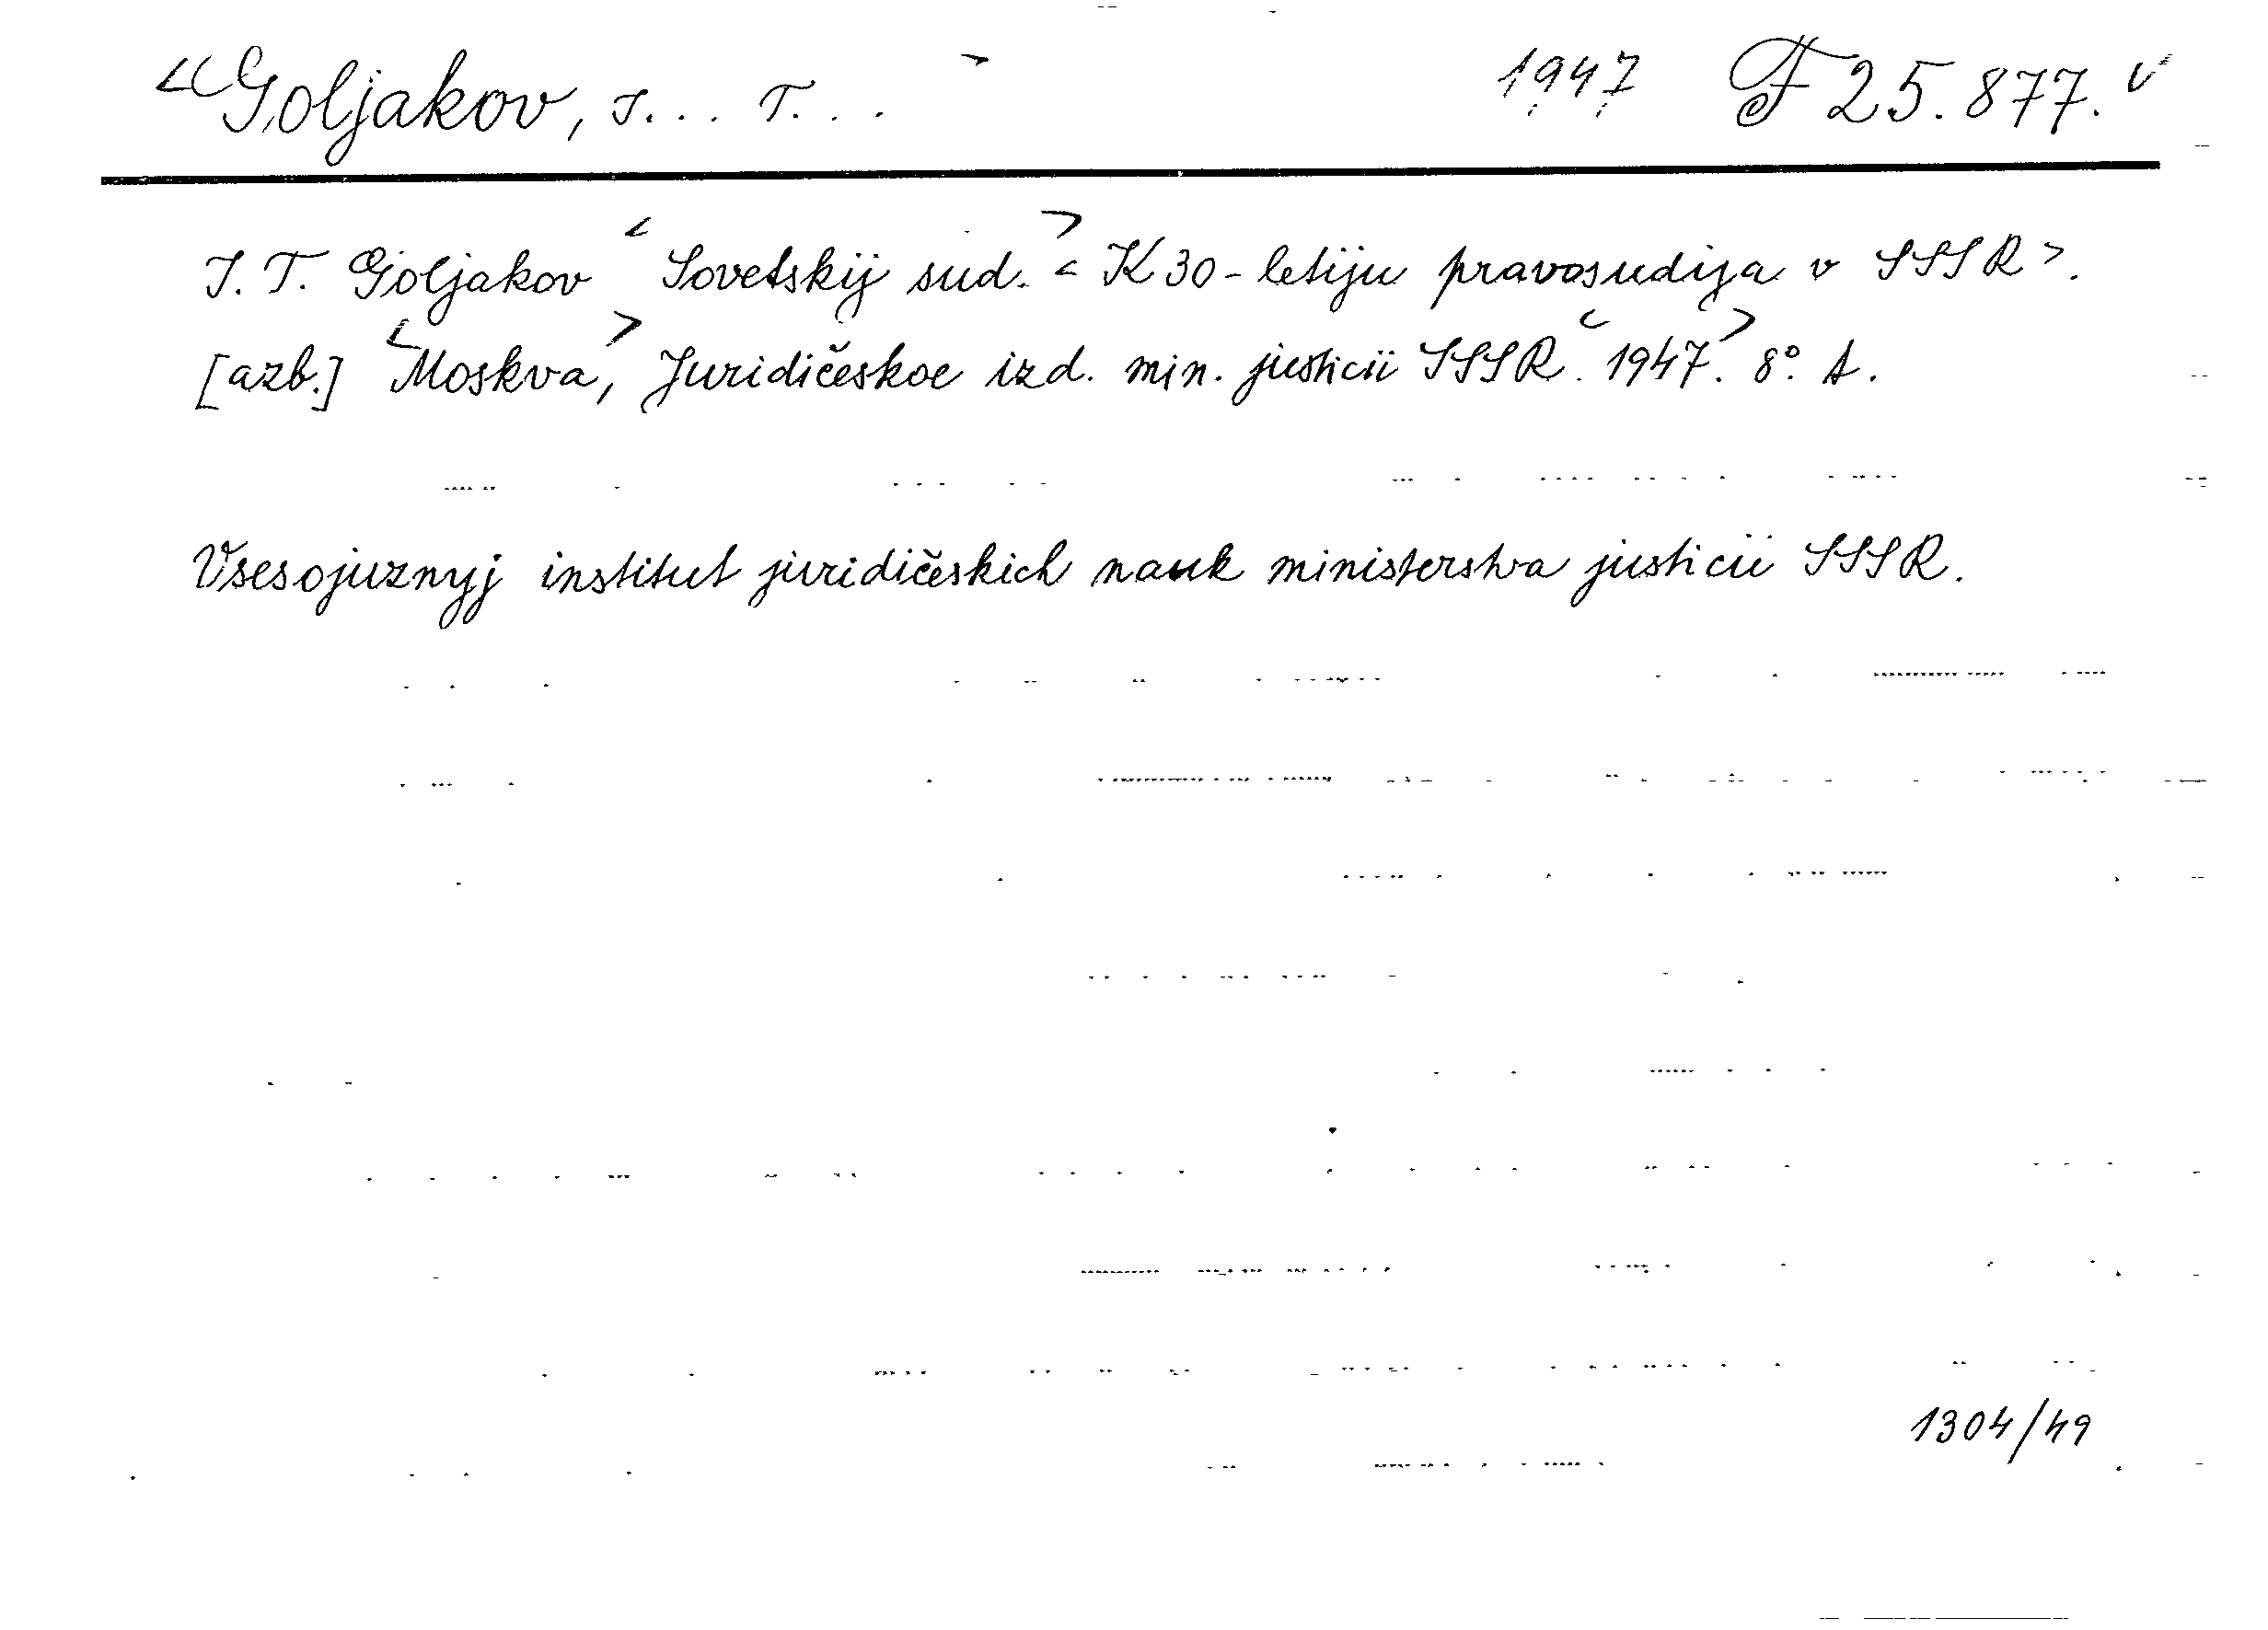 <Goljakov, I... T...> 1947 F 25.877. v
I. T. Goljakov <Sovetskij sud.> <K 30-letiju pravosudija v SSSR>.
[azb.] <Moskva,> Juridičeskoe izd. min. justicii SSSR. <1947.> 8° A.
Vsesojuznyj institut juridičeskich nauk ministerstva justicii SSSR.
1304/49